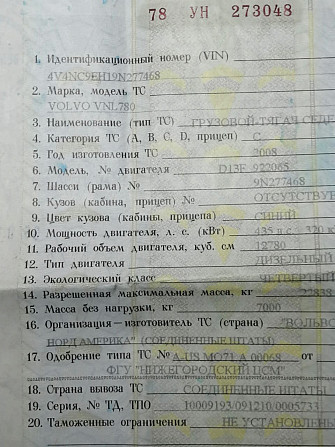 78 УН 273048
1. Идентификационный номер (VIN)
4V4NC9EH19N277468
2. Марка, модель ТС
VOLVO VNL780
3. Наименование (тип ТС) ГРУЗОВОЙ-ТЯГАЧ СЕДЕ
4. Категория ТС (А, В, С, D, прицеп) С
5. Год изготовления ТС 2008
6. Модель, № двигателя D13F 922065
7. Шасси (рама) № 9N277468
8. Кузов (кабина, прицеп) № ОТСУТСТВУЕ
9. Цвет кузова (кабины, прицепа) СИНИЙ
10. Мощность двигателя, л. с. (кВт) 435 л.с. 320 к
11. Рабочий объем двигателя, куб. см 12780
12. Тип двигателя ДИЗЕЛЬНЫЙ
13. Экологический класс ЧЕТВЕРТЫЙ
14. Разрешенная максимальная масса, кг 22838
15. Масса без нагрузки, кг 7000
16. Организация—изготовитель ТС (страна) "ВОЛЬВО
НОРД АМЕРИКА" (СОЕДИНЕННЫЕ ШТАТЫ)
17. Одобрение типа ТС № A-US.MO71.A.00068 от
ФГУ "НИЖЕГОРОДСКИЙ ЦСМ"
18. Страна вывоза ТС СОЕДИНЕННЫЕ ШТАТЫ
19. Серия, № ТД, ТПО 10009193/091210/0005733
20. Таможенные ограничения НЕ УСТАНОВЛЕН